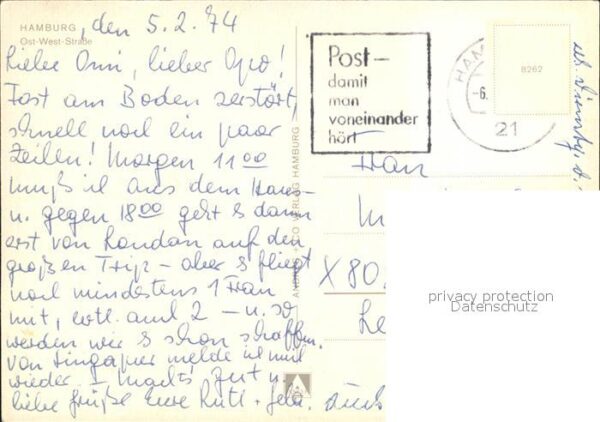 HAMBURG
Ost-West-Straße
, den 5.2.74
Liebe Omi, lieber Opa!
Fast am Boden zerstört,
schnell noch ein paar
Zeilen! Morgen 11 00
muß ich aus dem Haus
u. gegen 18 00 geht's dann
erst von London auf den
großen Trip - aber's fliegt
noch mindestens 1 Frau
mit, evtl. auch 2 - u. so
werden wir's schon schaffen.
Von Singapur melde ich mich
wieder. Macht's gut u.
liebe Grüße Eure
Post-
damit
man
voneinander
hört
HAM
-6.
21
8262
VERLAG HAMBURG
Frau
X 80
privacy protection
Datenschutz